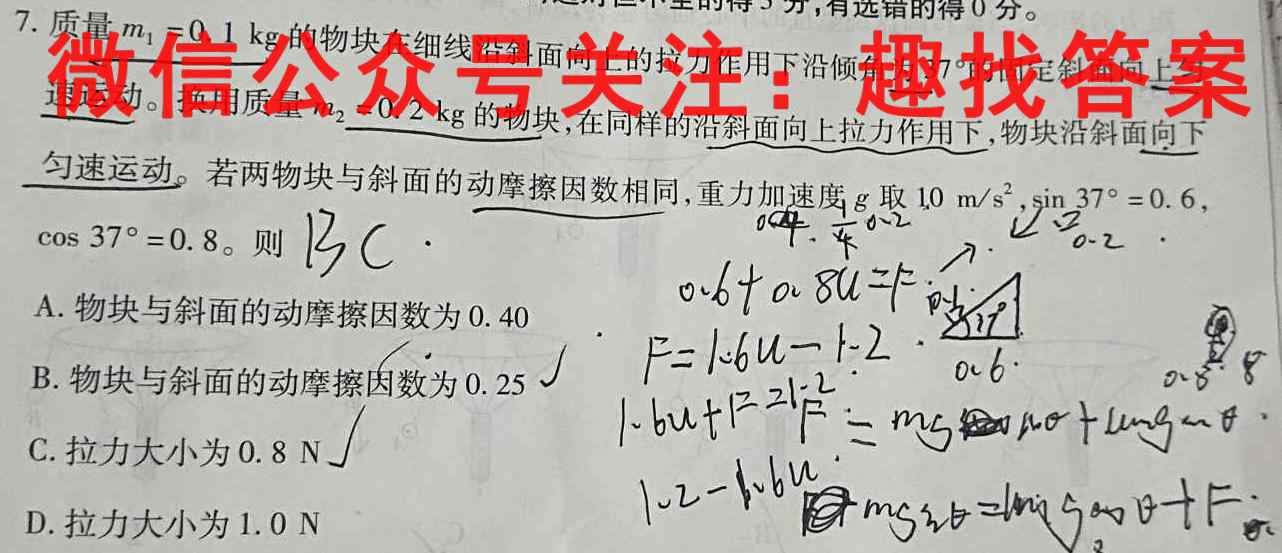 分,有选错的得0分。
7. 质量 m₁ =0.1 kg 的物块在细线沿斜面向上的拉力作用下沿倾角为37°的固定斜面向上匀
微信公众号关注：趣找答案
速运动。换用质量 m₂ =0.2 kg 的物块,在同样的沿斜面向上拉力作用下,物块沿斜面向下
匀速运动。若两物块与斜面的动摩擦因数相同,重力加速度 g 取 10 m/s²,sin 37°=0.6,
cos 37°=0.8。则 BC
0.6+0.8u=F
A. 物块与斜面的动摩擦因数为 0.40
F=1.6u-1.2
37°
0.6
B. 物块与斜面的动摩擦因数为 0.25 √
1.6u+F=1.2
C. 拉力大小为 0.8 N √
1.2-1.6u
D. 拉力大小为 1.0 N